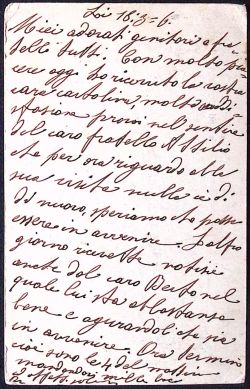 Li 18-5-6.
Miei adorati genitori e fra
telli tutti. Con molto pia
cere oggi ho ricevuto la vostra
cara cartolina, molta sodi
sfazione provai nel sentire
del caro fratello Attilio
che per ora riguardo alla
sua visita nulla ci è di
di nuovo, speriamo che possa
essere in avvenire. L'altro
giorno ricevette notizie
anche dal caro Berto nel
quale lui sta abbastanza
bene e agurandoli che sia
in avvenire. Ora termino
cioè sono le 4 del mattino
mandandovi mille